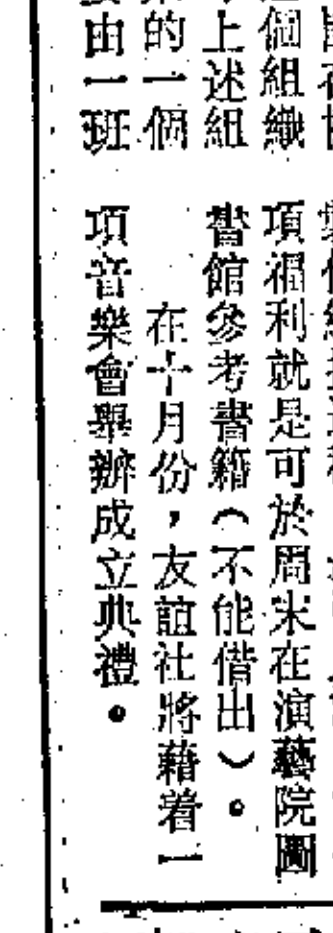 個組織
上述組
的一個
由一班
項福利就是可於周末在演藝院圖
書館參考書籍（不能借出）。
在十月份，友誼社將藉着一
項音樂會舉辦成立典禮。